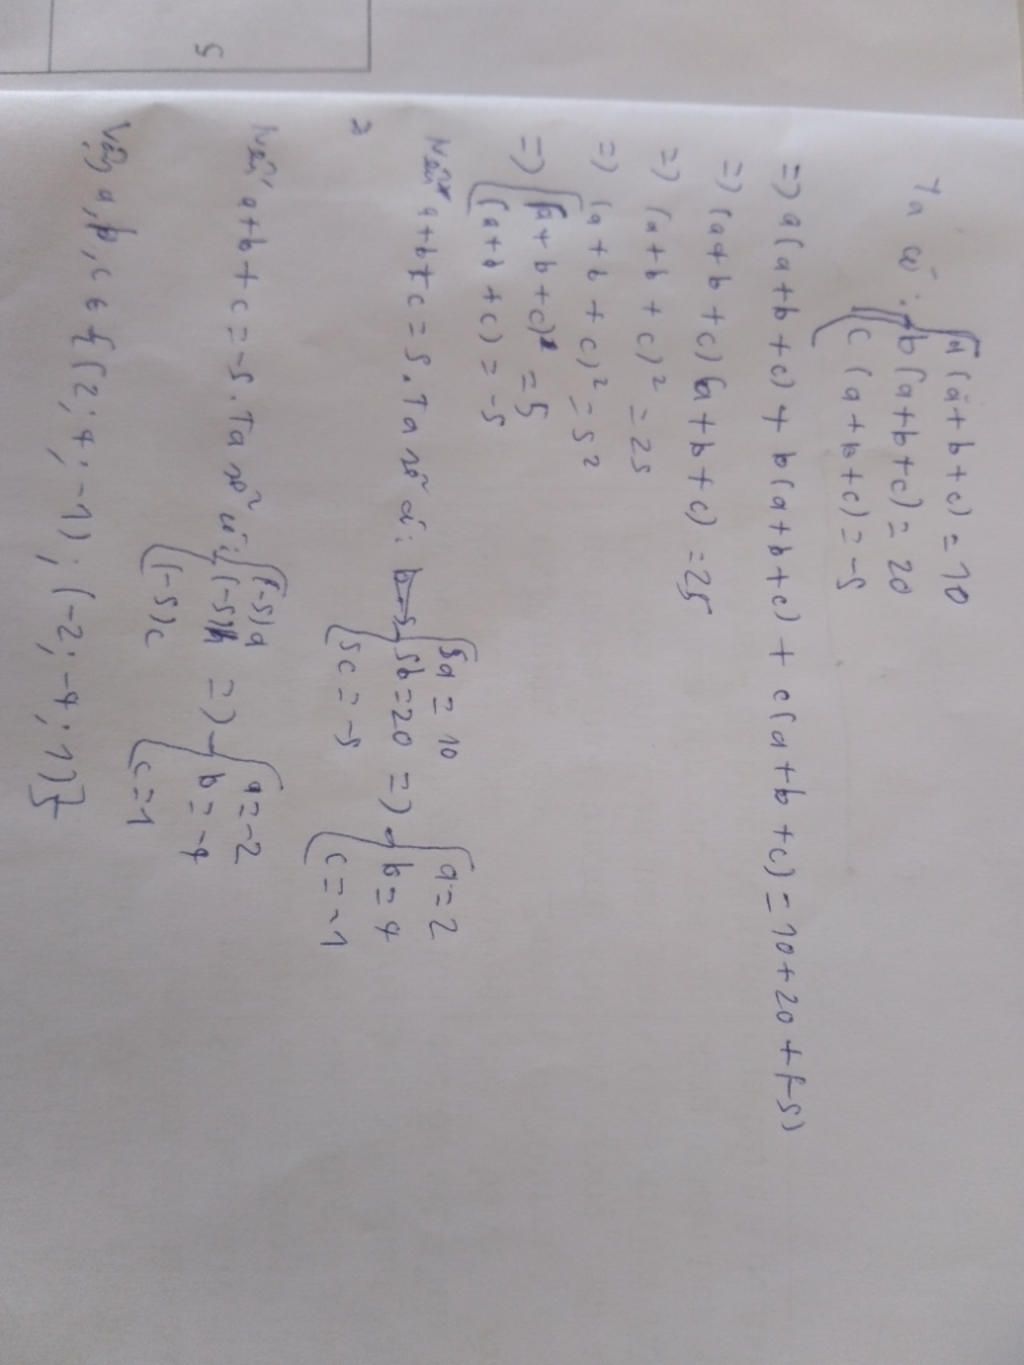 5
Ta có: { a(a+b+c) = 10
b(a+b+c) = 20
c(a+b+c) = -5
=> a(a+b+c) + b(a+b+c) + c(a+b+c) = 10+20+(-5)
=> (a+b+c)(a+b+c) = 25
=> (a+b+c)² = 25
=> (a+b+c)² = 5²
=> [ (a+b+c) = 5
(a+b+c) = -5
Nếu a+b+c = 5. Ta sẽ có: { 5a = 10 => { a = 2
5b = 20 b = 4
5c = -5 c = -1
Nếu a+b+c = -5. Ta sẽ có: { (-5)a => { a = -2
(-5)b b = -4
(-5)c c = 1
Vậy a,b,c ∈ {(2;4;-1);(-2;-4;1)}